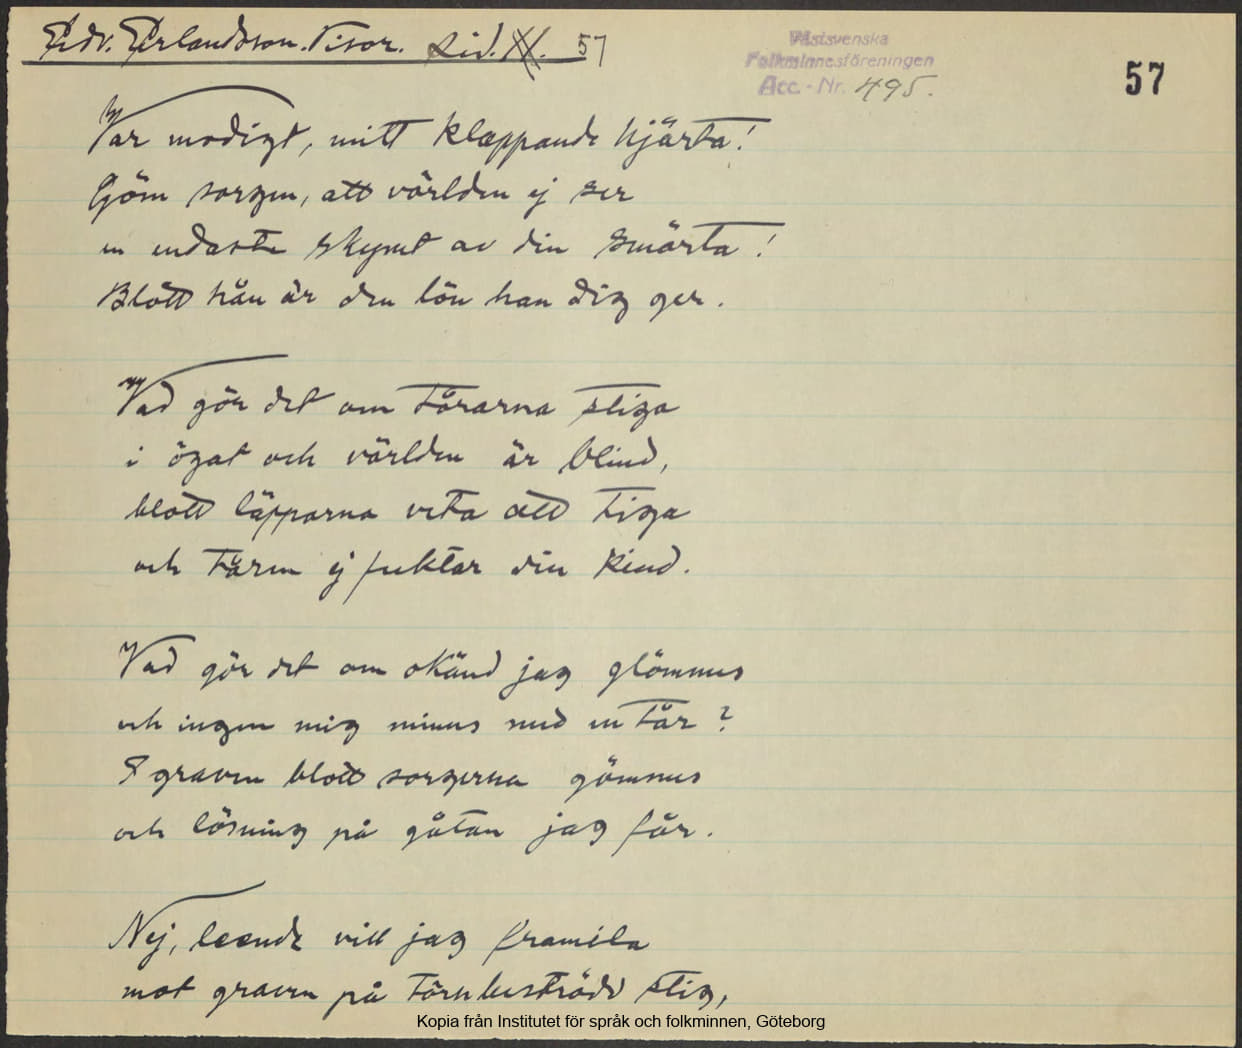 Edv. Erlandsson. Visor. Sid. 57
Västsvenska
Folkminnesföreningen
Acc. - Nr. 495.
57
Var modigt, mitt klappande hjärta!
Göm sorgen, att världen ej ser
en endaste skymt av din smärta!
Blott hån är den lön han dig ger.
Vad gör det om tårarna stiga
i ögat och världen är blind,
blott läpparna veta att tiga
och tåren ej fuktar din kind.
Vad gör det om okänd jag glömmes
och ingen mig minnes med en tår?
I graven blott sorgerna gömmes
och lösning på gåtan jag får.
Nej, leende vill jag framila
mot graven på törnbeströdd stig,
Kopia från Institutet för språk och folkminnen, Göteborg